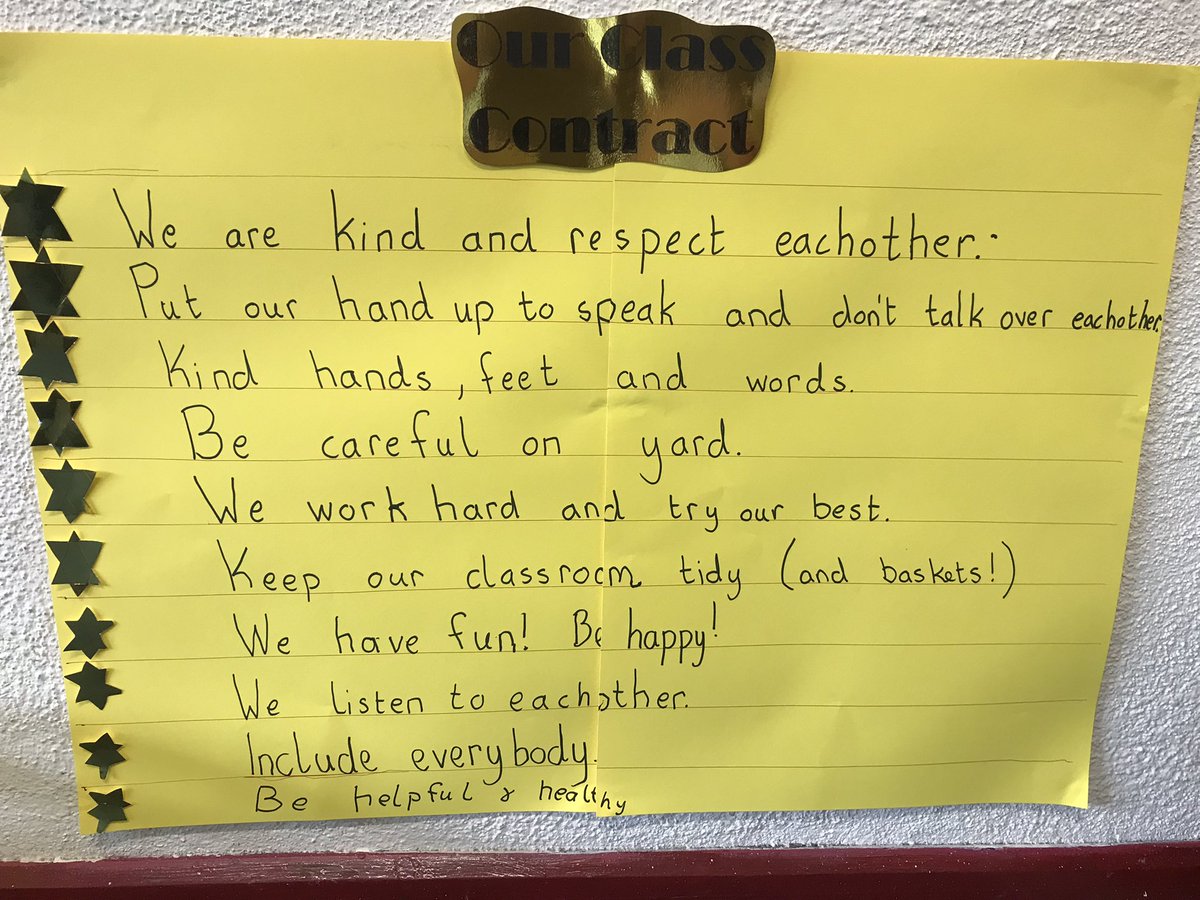 Our Class
Contract
We are kind and respect eachother.
Put our hand up to speak and don't talk over eachother.
Kind hands, feet and words.
Be careful on yard.
We work hard and try our best.
Keep our classroom tidy (and baskets!)
We have fun! Be happy!
We listen to eachother.
Include everybody.
Be helpful & healthy